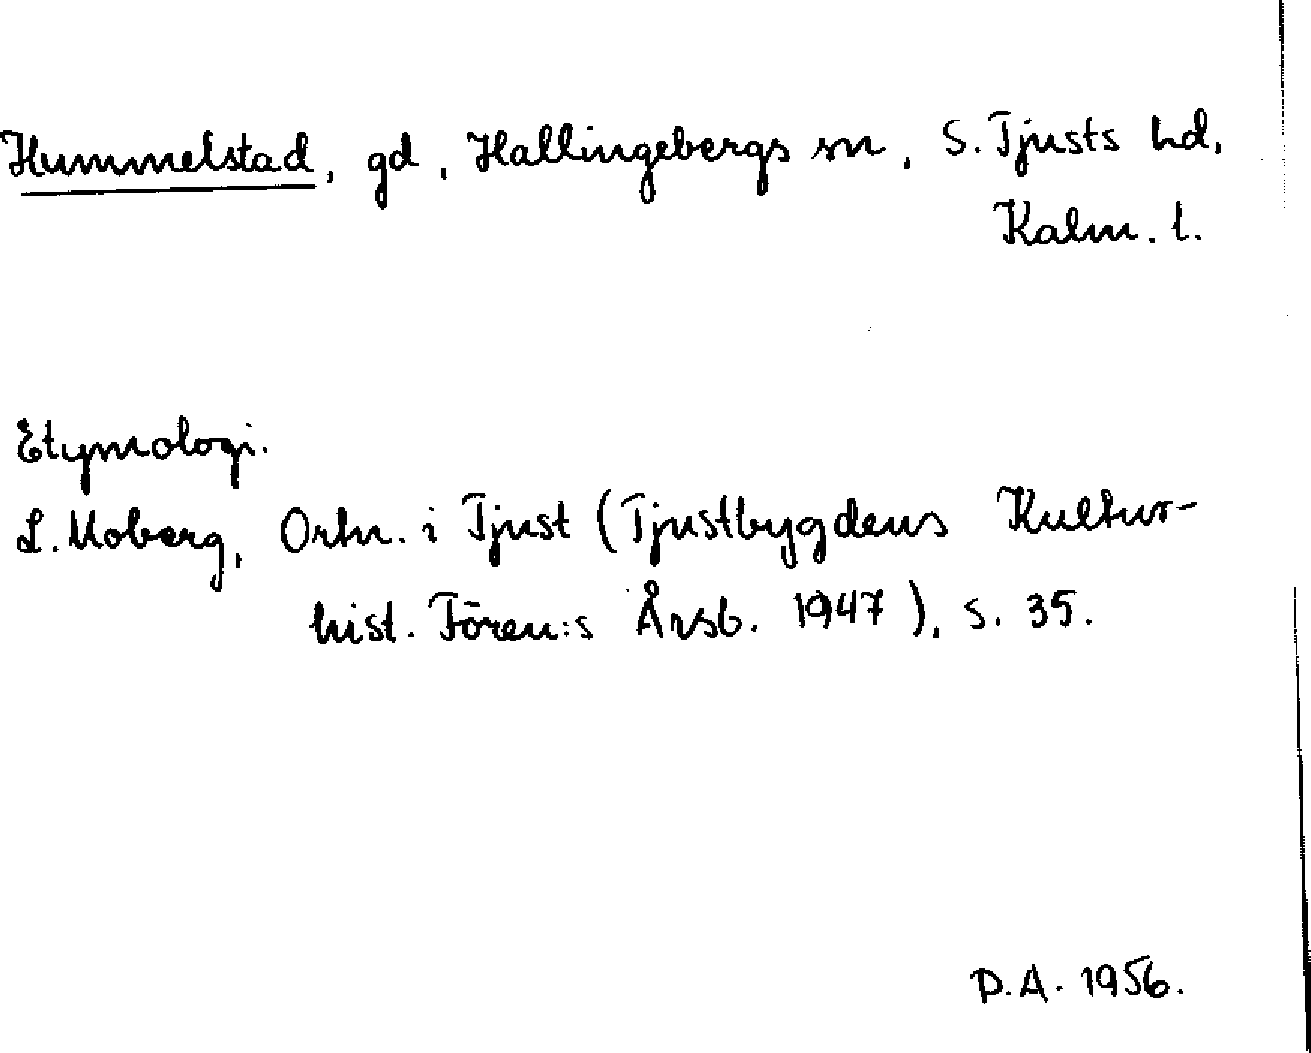 Hummelstad, gd, Hallingebergs sn, S. Tjusts hd,
Kalm. l.
Etymologi.
L. Moberg, Ortn. i Tjust (Tjustbygdens Kultur-
hist. Fören:s Årsb. 1947), s. 35.
D.A. 1956.